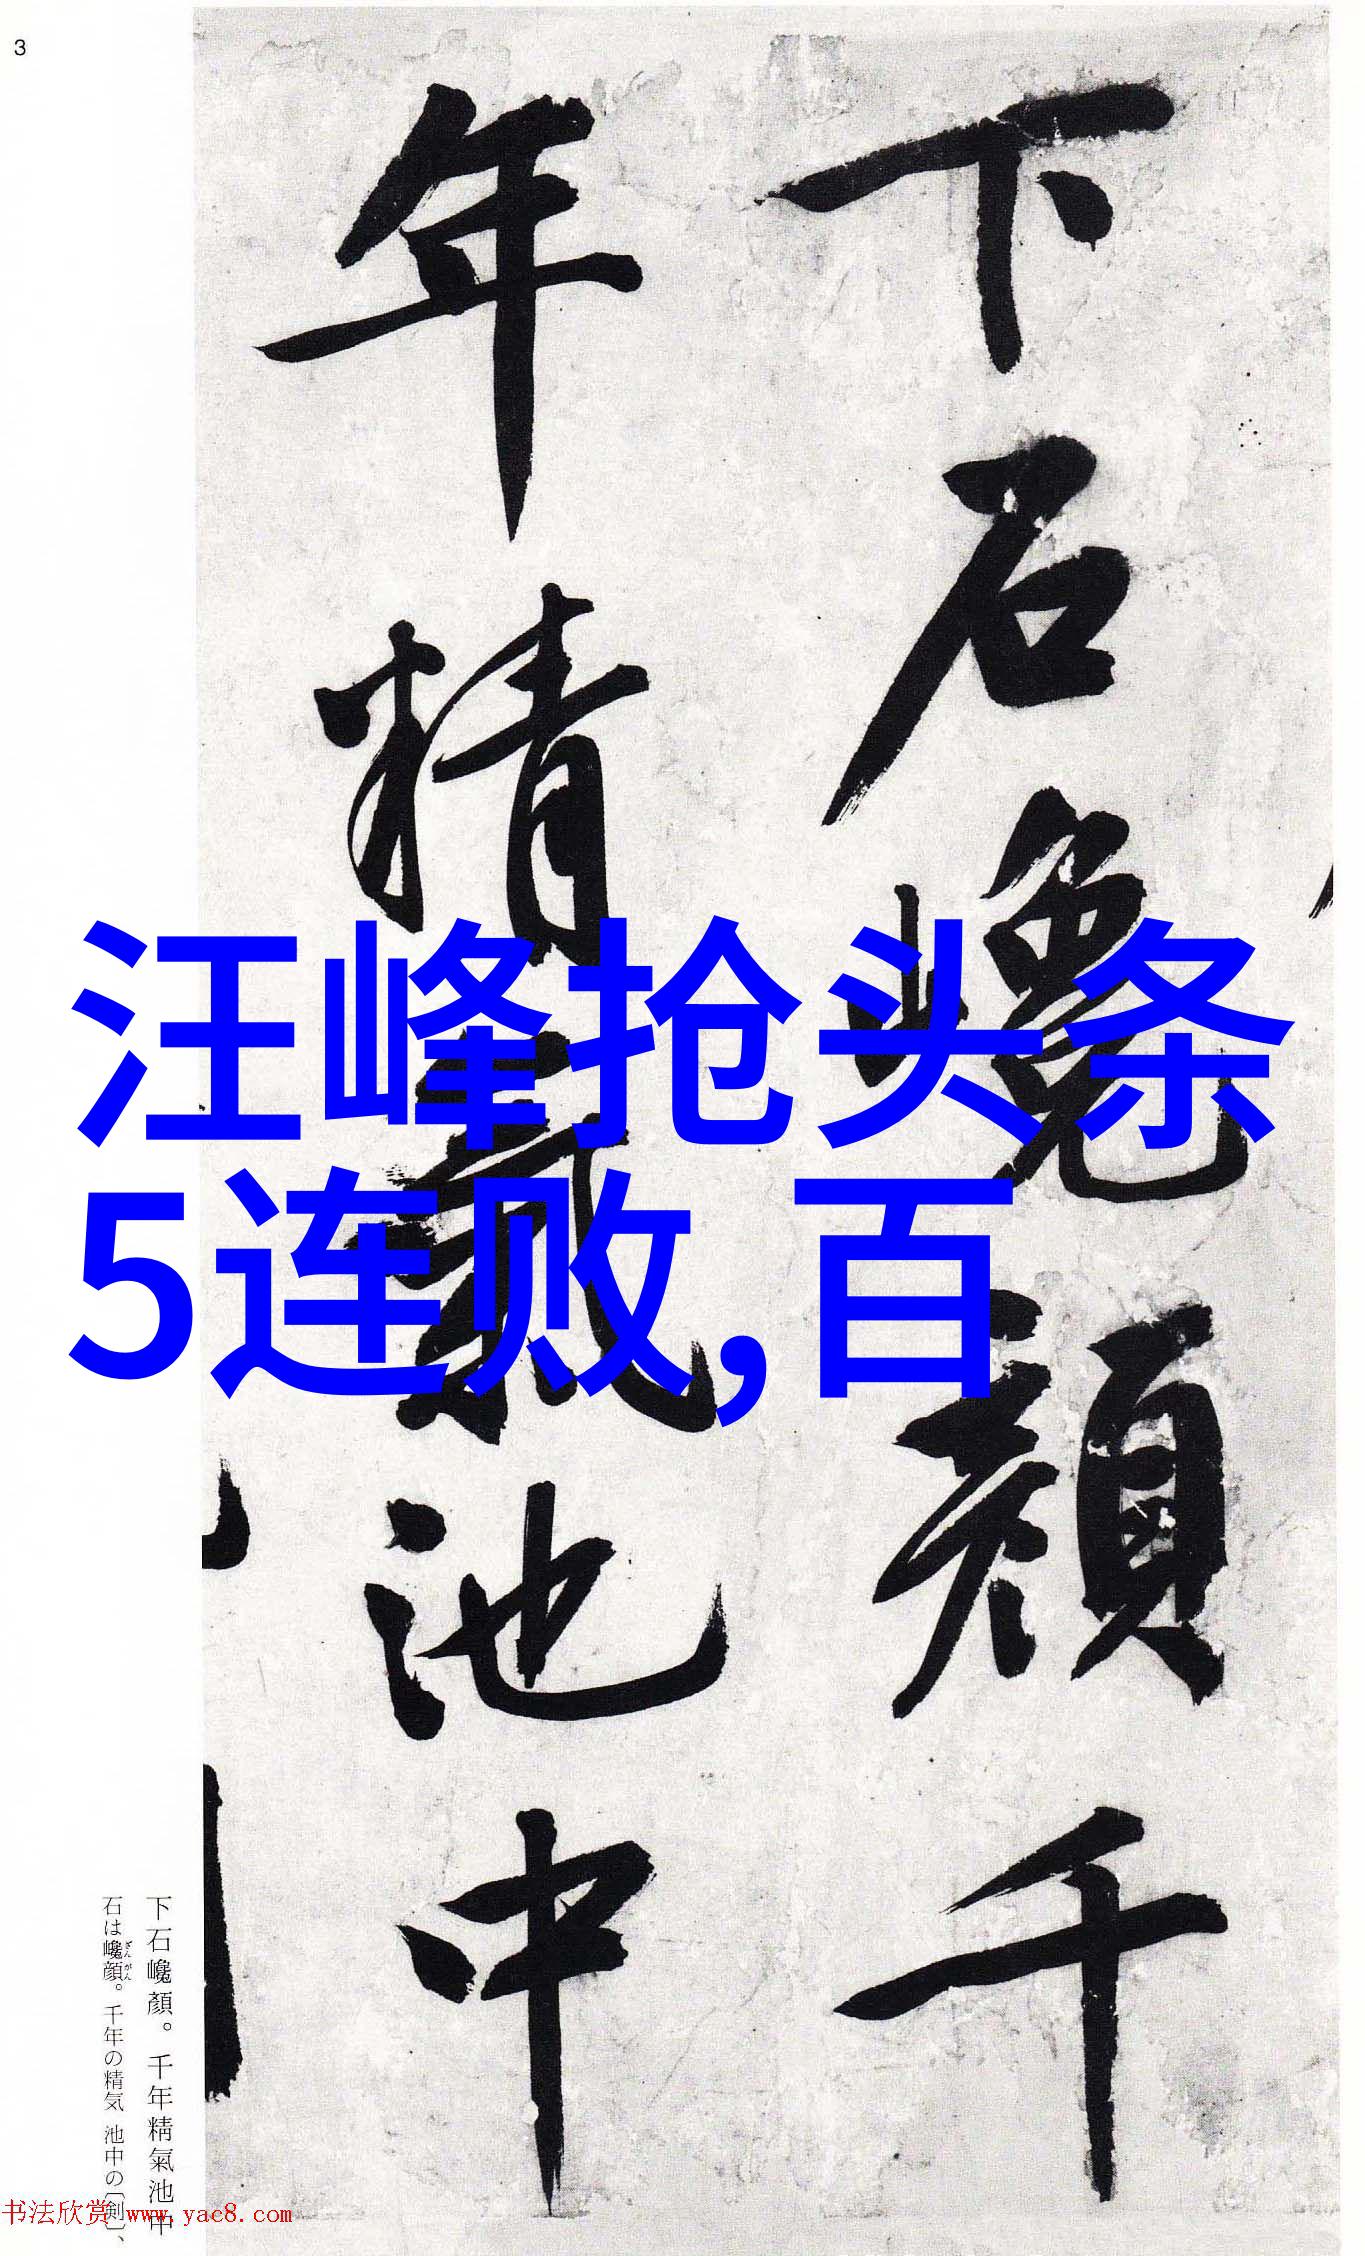 3
下石巉顏千
年精氣池中
汪峰抢头条
5连败,百
下石巉顏。千年精氣池中
石は巉顔。千年の精気 池中の〔剣〕、
ざんがん
书法欣赏 www.yac8.com